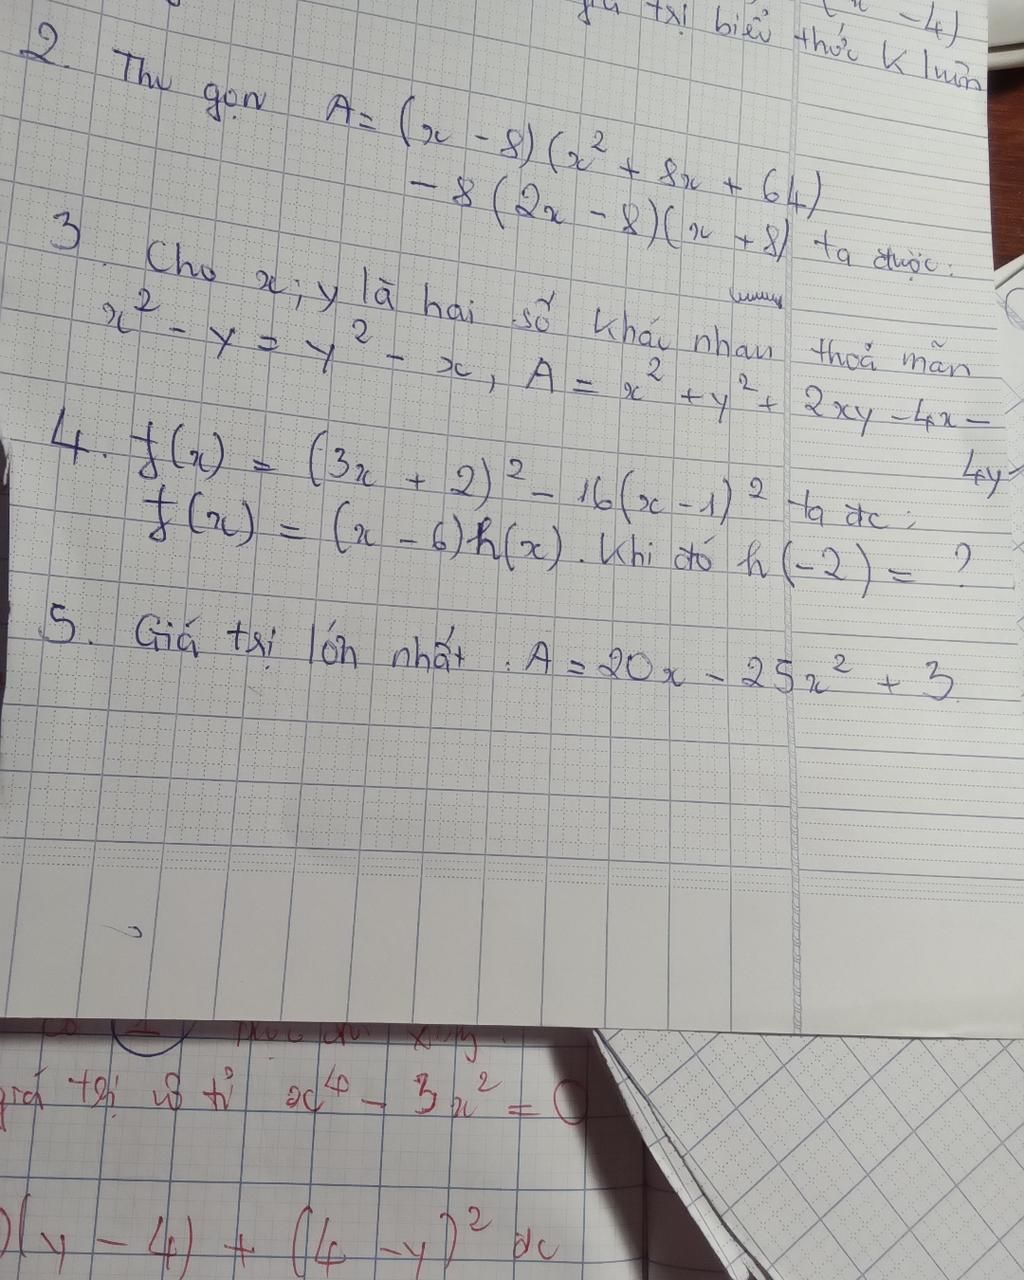 x - 4)
trị biểu thức K luôn
2. Thu gọn A = (x - 8)(x² + 8x + 64)
- 8(2x - 8)(x + 8) ta được:
3. Cho x; y là hai số khác nhau thoả mãn
x² - y = y² - x, A = x² + y² + 2xy - 4x -
4y
4. f(x) = (3x + 2)² - 16(x - 1)² ta đc:
f(x) = (x - 6)h(x). Khi đó h(-2) = ?
5. Giá trị lớn nhất: A = 20x - 25x² + 3
trị x⁴ - 3x² = 0
(y - 4) + (4 - y)² đc